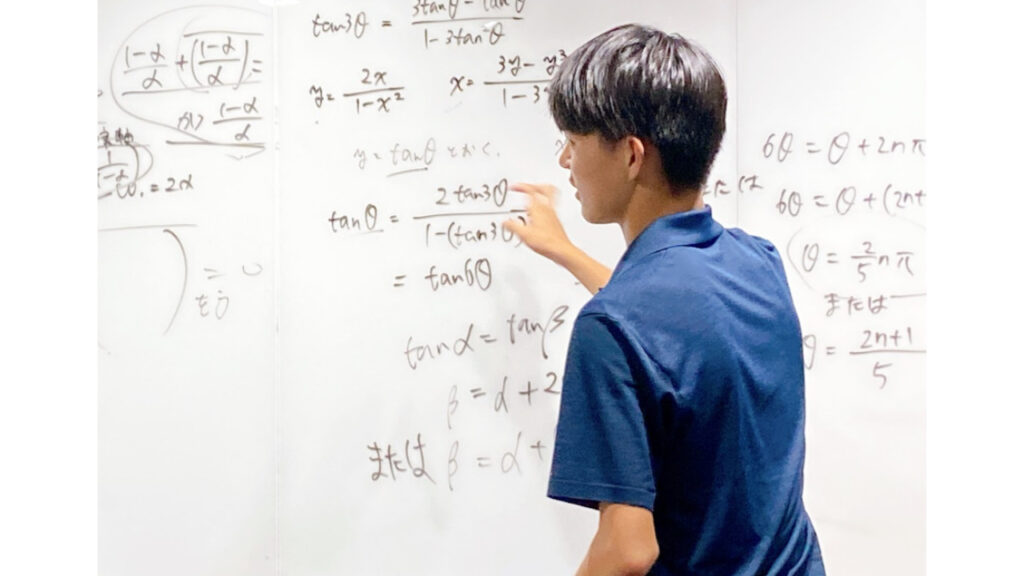 1-α/α + (1-α/α) =
かつ 1-α/α
= 2α
= 0
tan3θ = 3tanθ - tan θ / 1-3tan²θ
y = 2x / 1-x²
x = 3y - y³ / 1-3
y = tanθ とおく、
tanθ = 2tan3θ / 1-(tan3θ)
= tan6θ
tanα = tanβ
β = α + 2
または β = α +
6θ = θ + 2nπ
または
6θ = θ + (2n+
θ = 2/5 nπ
または
θ = 2n+1 / 5